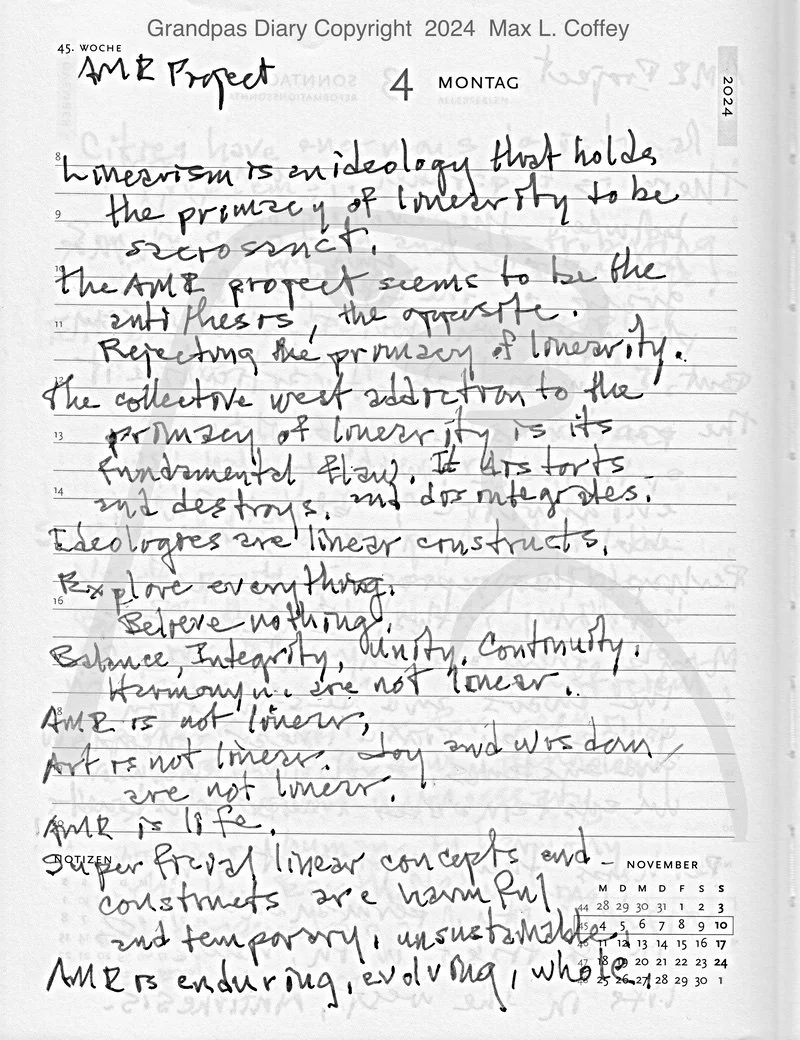 Grandpas Diary Copyright 2024 Max L. Coffey
45. WOCHE
AMR Project
4 MONTAG
2024
8
Linearism is an ideology that holds
9
the primacy of linearity to be
sacrosanct.
10
The AMR project seems to be the
11
antithesis, the opposite.
Rejecting the primacy of linearity.
12
The collective west addiction to the
13
primacy of linearity is its
fundamental flaw. It distorts
14
and destroys. and disintegrates.
Ideologies are linear constructs.
Explore everything.
16
Believe nothing.
Balance, Integrity, Unity, Continuity.
Harmony... are not linear..
18
AMR is not linear,
Art is not linear. Joy and wisdom
are not linear.
20
AMR is life.
NOTIZEN
Superficial linear concepts and
constructs are harmful
and temporary, unsustainable.
AMR is enduring, evolving, whole.
NOVEMBER
M D M D F S S
44 28 29 30 31 1 2 3
45 4 5 6 7 8 9 10
46 11 12 13 14 15 16 17
47 18 19 20 21 22 23 24
48 25 26 27 28 29 30 1